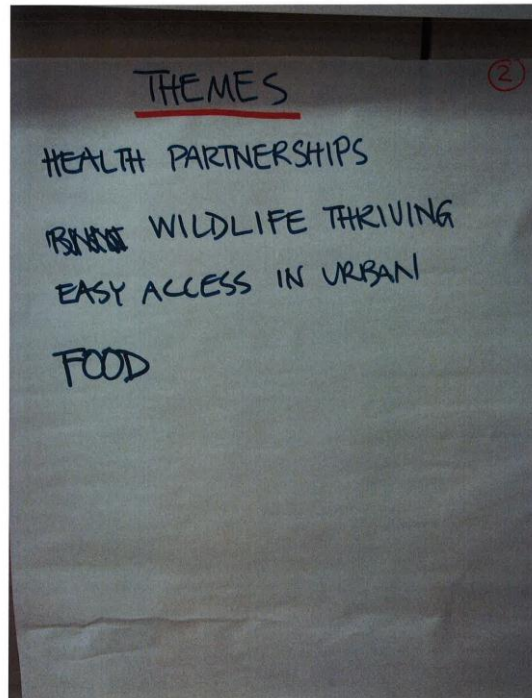 THEMES
2
HEALTH PARTNERSHIPS
WILDLIFE THRIVING
EASY ACCESS IN URBAN
FOOD